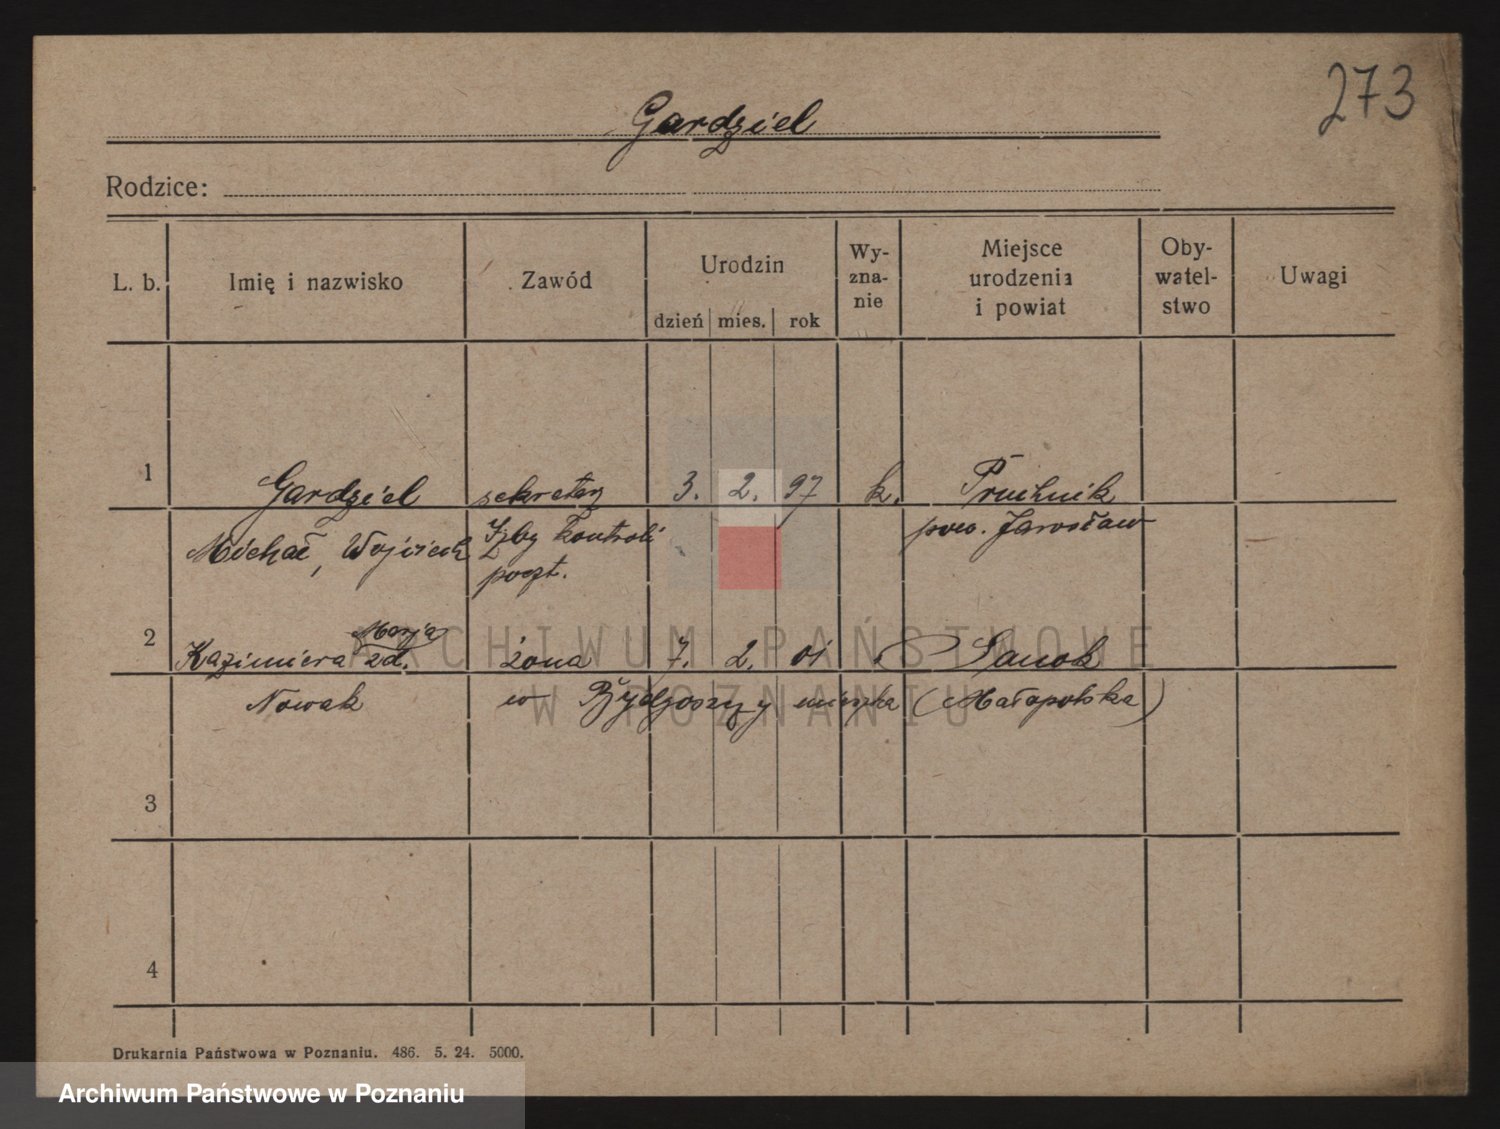 273
Gardziel
Rodzice:
L. b. Imię i nazwisko Zawód Urodzin Wy-zna-nie Miejsce urodzenia i powiat Oby-watel-stwo Uwagi
dzień mies. rok
1 Gardziel sekretarz 3. 2. 97 k. Pruchnik
Michał, Wojciech Izby kontroli pow. Jarosław
poczt.
Marja
2 Kazimiera zd. żona 7. 2. 01 Sanok
Nowak w Bydgoszczy mieszka (Małopolska)
3
4
ARCHIWUM PAŃSTWOWE
W POZNANIU
Drukarnia Państwowa w Poznaniu. 486. 5. 24. 5000.
Archiwum Państwowe w Poznaniu